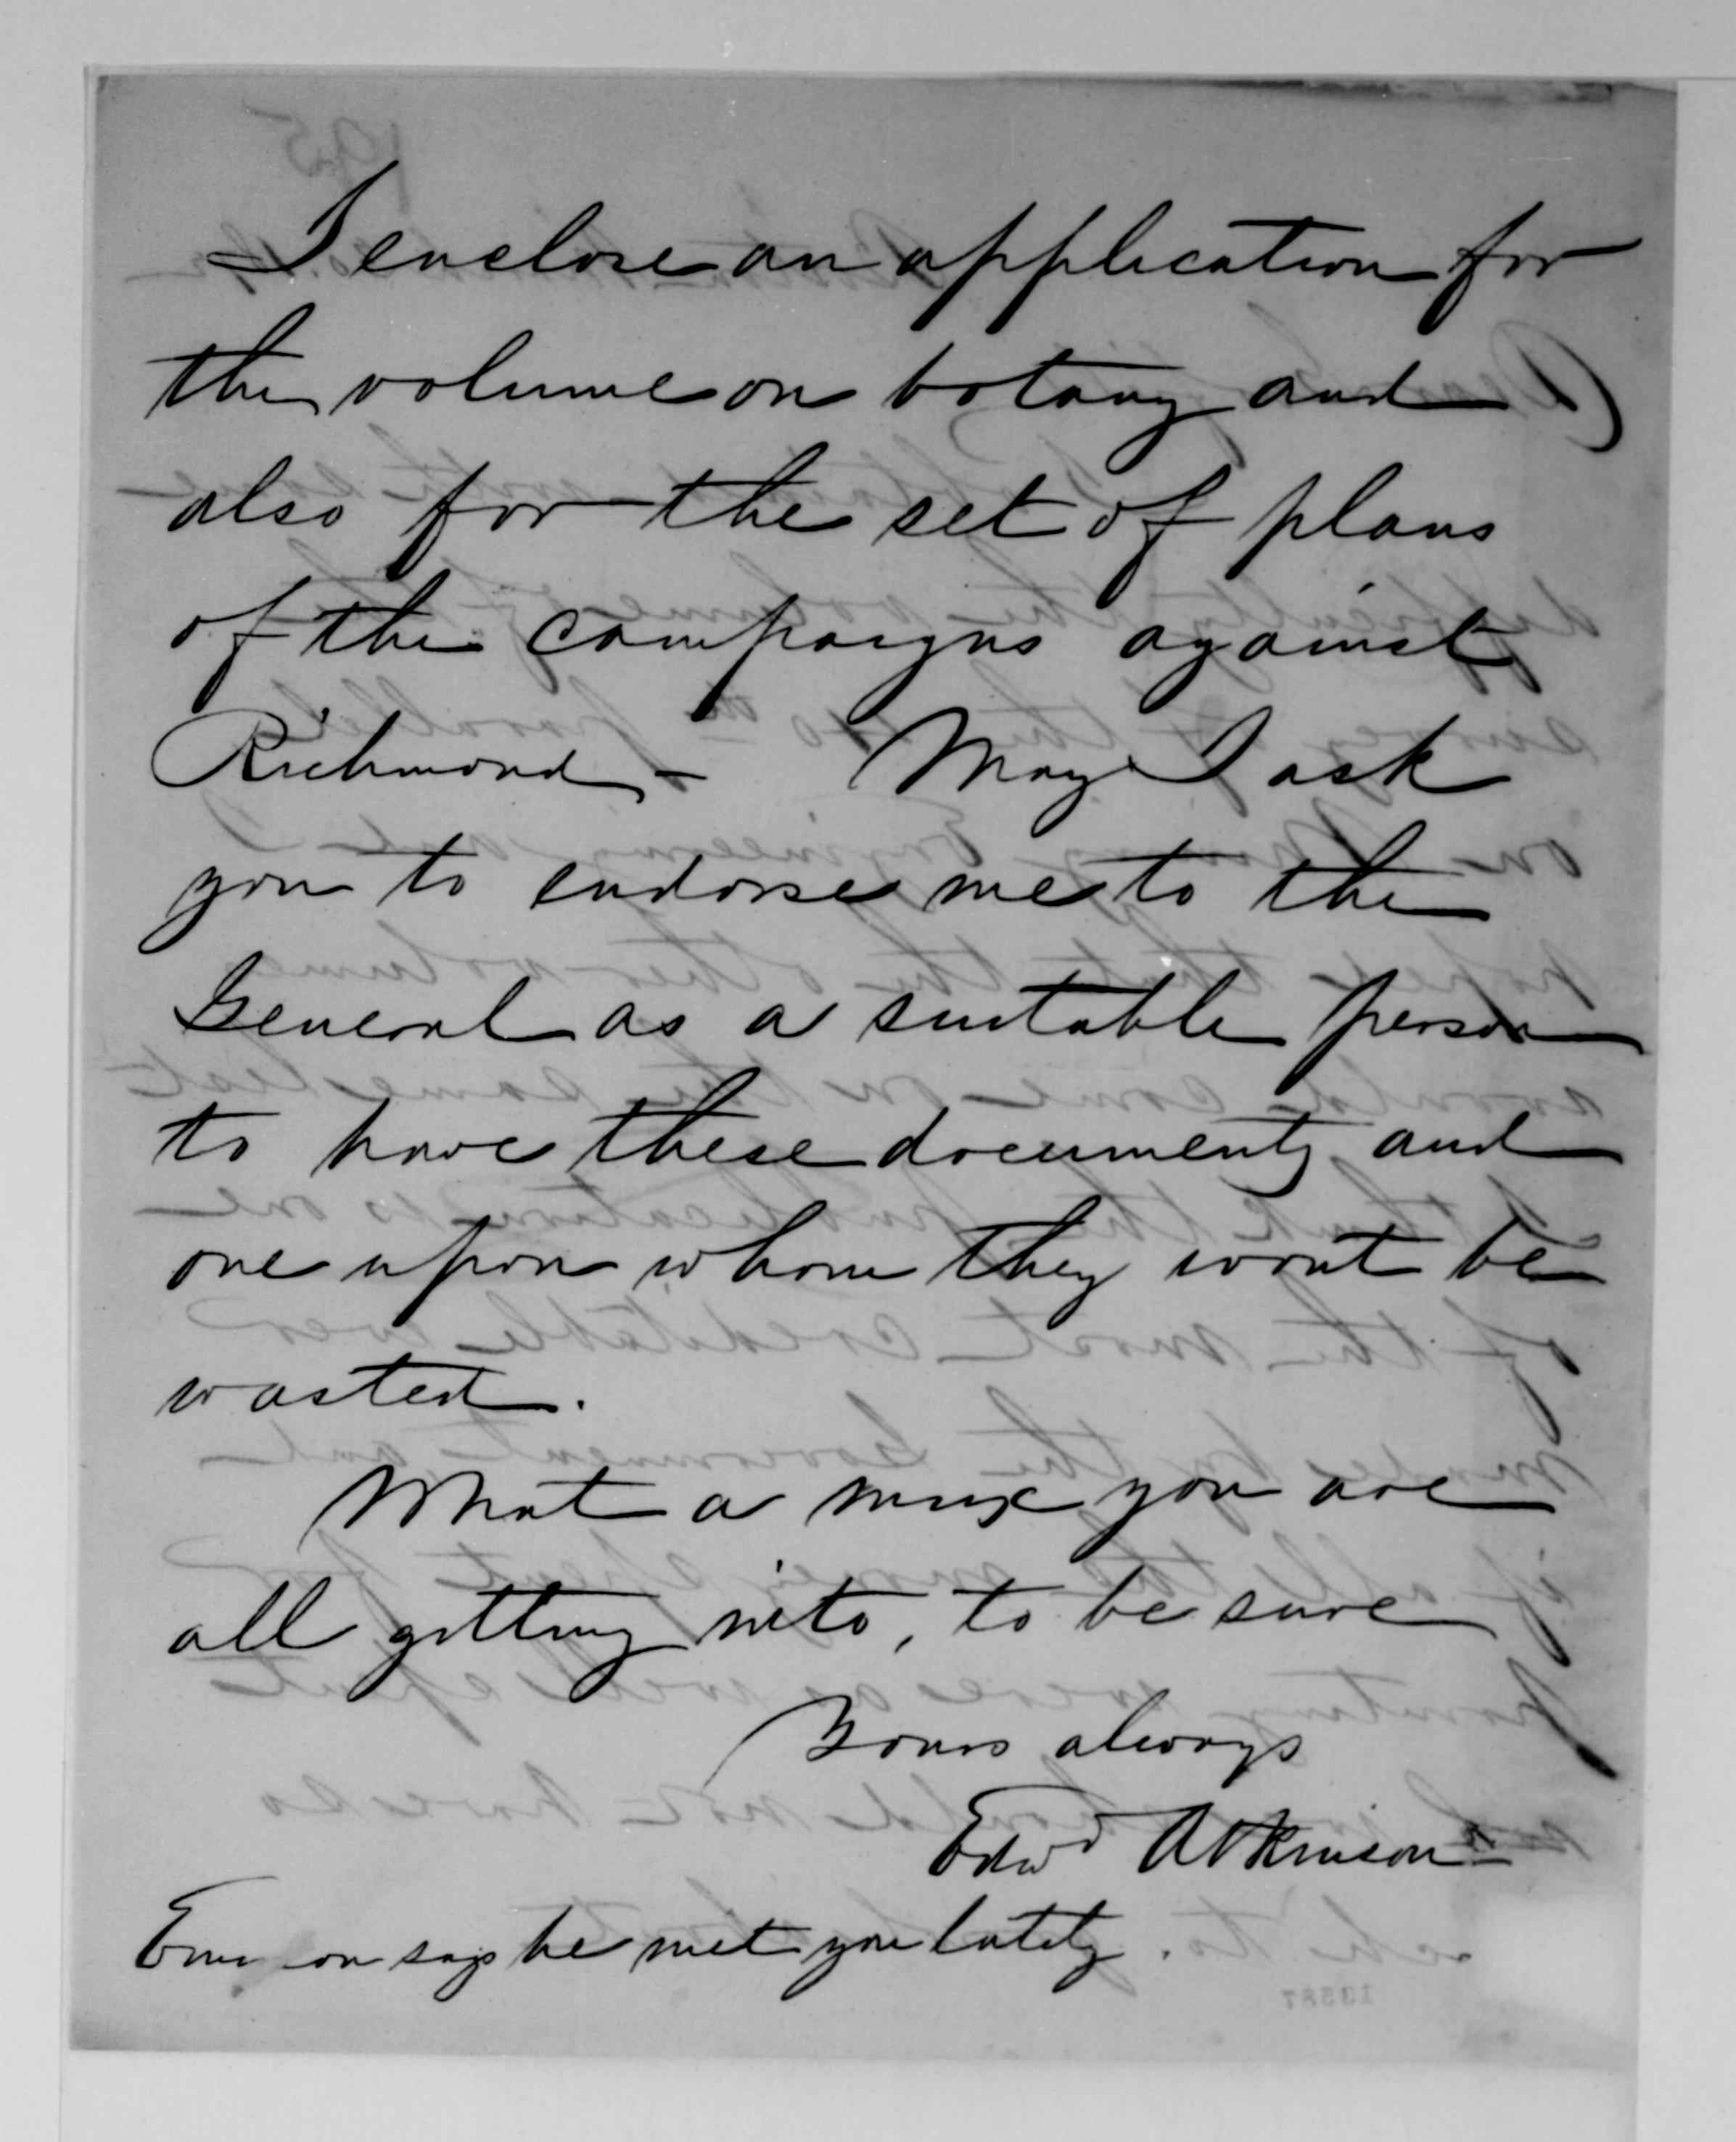 I enclose an application for
the volume on botany and
also for the set of plans
of the campaigns against
Richmond – May I ask
you to endorse me to the
General as a suitable person
to have these documents and
one upon whom they wont be
wasted.
What a muss you are
all getting into, to be sure
Yours always
Edwd Atkinson
says he met you lately.